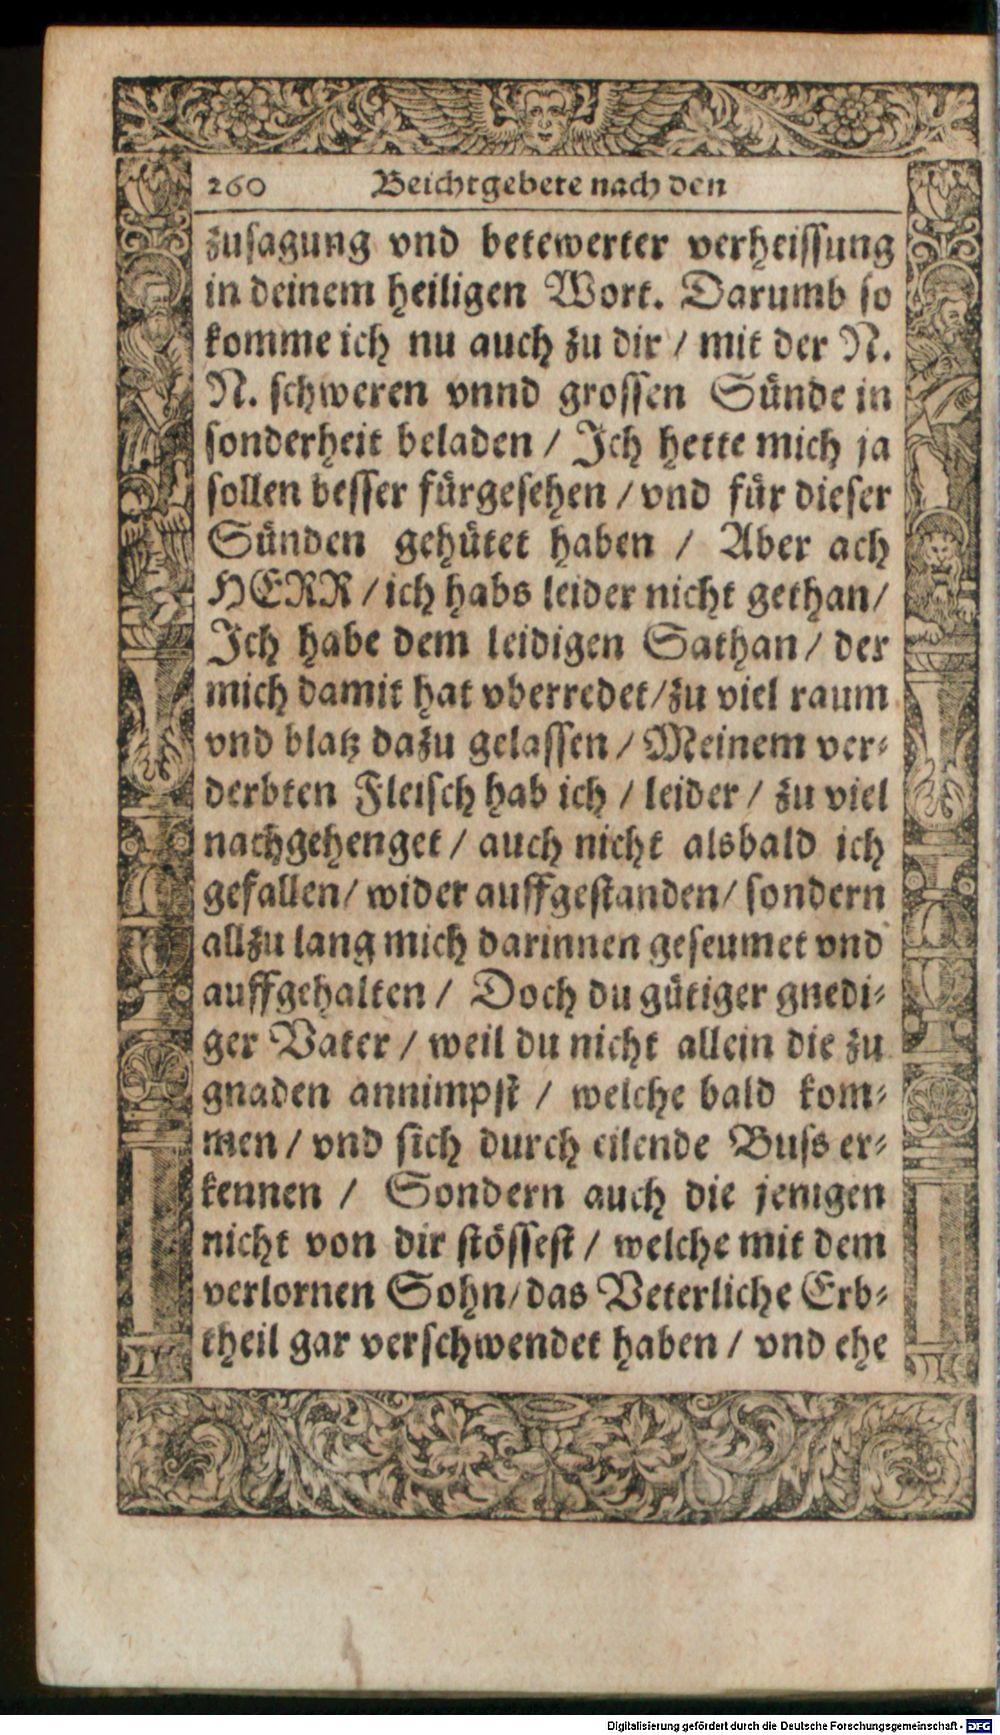 260 Beichtgebete nach den
zusagung vnd betewerter verheissung
in deinem heiligen Wort. Darumb so
komme ich nu auch zu dir / mit der N.
N. schweren vnnd grossen Sünde in
sonderheit beladen / Ich hette mich ja
sollen besser fürgesehen / vnd für dieser
Sünden gehütet haben / Aber ach
HERR / ich habs leider nicht gethan /
Ich habe dem leidigen Sathan / der
mich damit hat vberredet / zu viel raum
vnd blatz dazu gelassen / Meinem ver⸗
derbten Fleisch hab ich / leider / zu viel
nachgehenget / auch nicht alsbald ich
gefallen / wider auffgestanden / sondern
allzu lang mich darinnen geseumet vnd
auffgehalten / Doch du gütiger gnedi⸗
ger Vater / weil du nicht allein die zu
gnaden annimpst / welche bald kom⸗
men / vnd sich durch eilende Buss er⸗
kennen / Sondern auch die jenigen
nicht von dir stössest / welche mit dem
verlornen Sohn / das Veterliche Erb⸗
theil gar verschwendet haben / vnd ehe
Digitalisierung gefördert durch die Deutsche Forschungsgemeinschaft - DFG